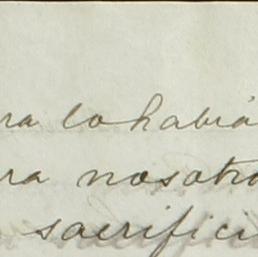 ra lo habia
ra nosotro
sacrifici